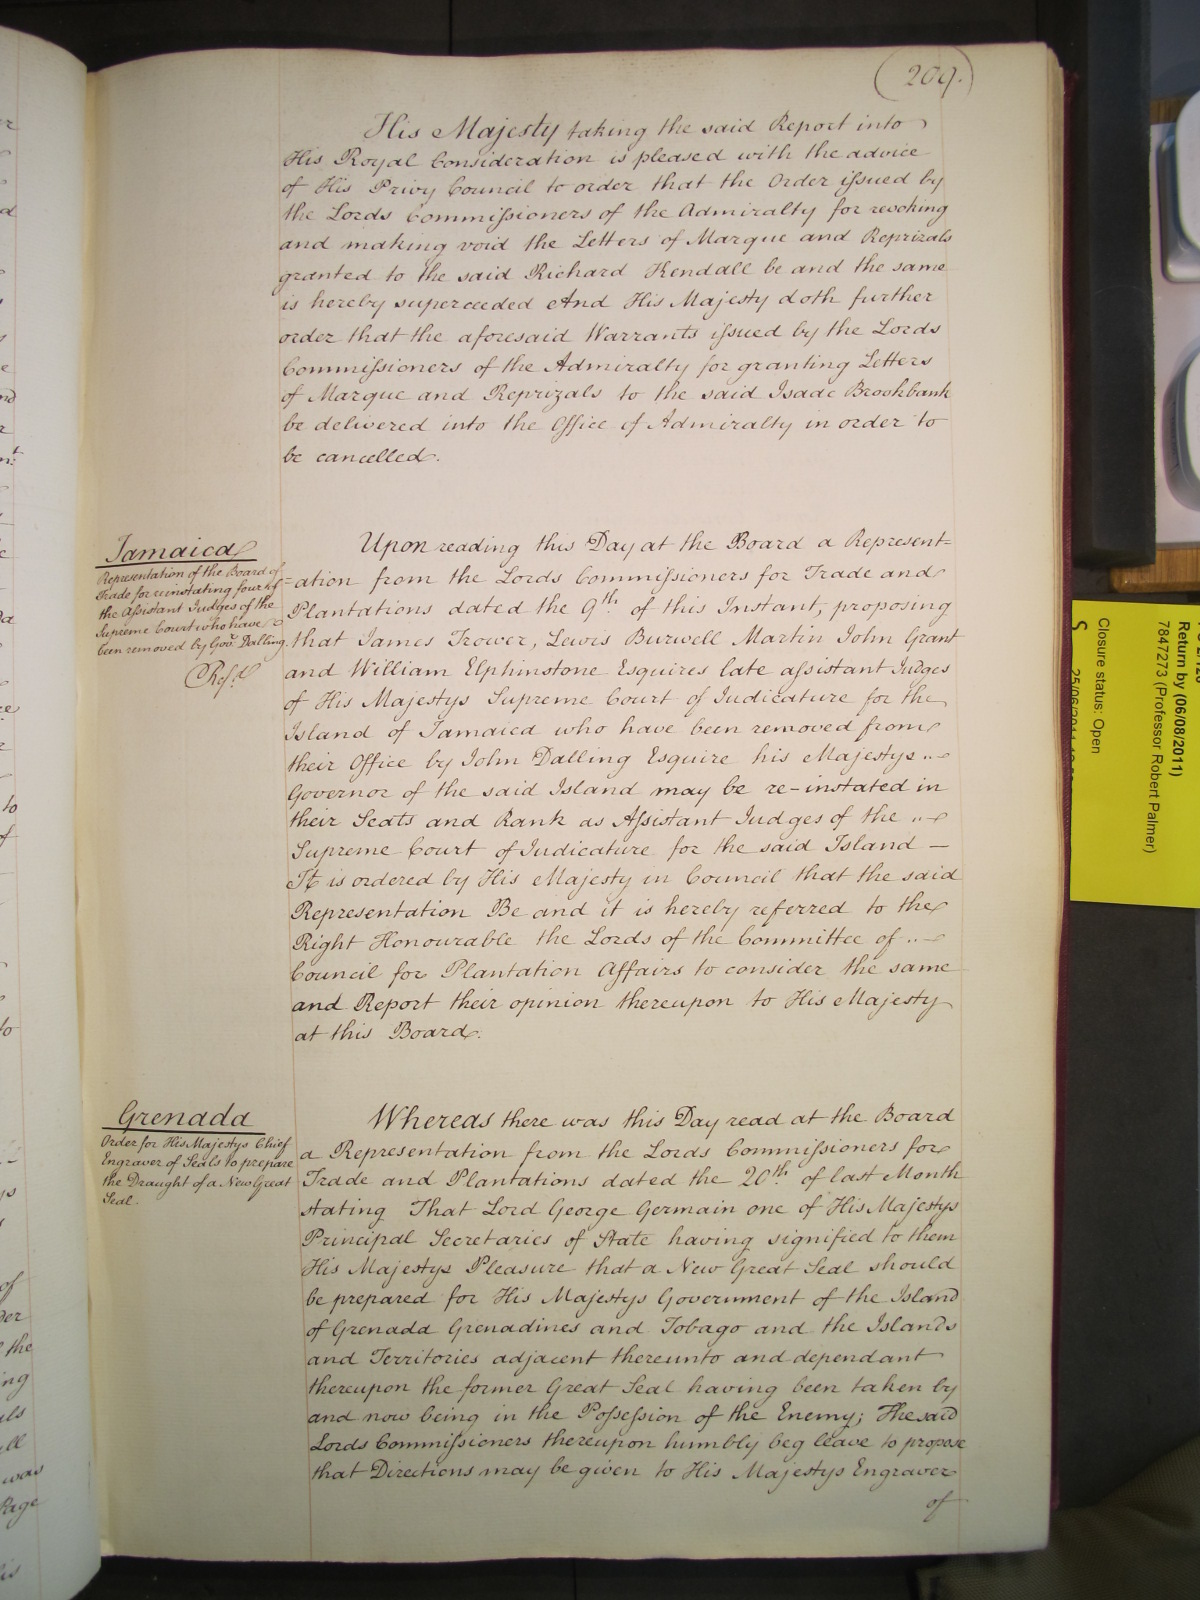 (209.)
His Majesty taking the said Report into
His Royal Consideration is pleased with the advice
of His Privy Council to order that the Order issued by
the Lords Commissioners of the Admiralty for revoking
and making void the Letters of Marque and Reprizals
granted to the said Richard Kendall be and the same
is hereby superceeded And His Majesty doth further
order that the aforesaid Warrants issued by the Lords
Commissioners of the Admiralty for granting Letters
of Marque and Reprizals to the said Isaac Brookbank
be delivered into the Office of Admiralty in order to
be cancelled.
Jamaica
Representation of the Board of
Trade for reinstating four of
the Assistant Judges of the
Supreme Court who have
been removed by Govr. Dalling.
Refd.
Upon reading this Day at the Board a Represent=
=ation from the Lords Commissioners for Trade and
Plantations dated the 9th. of this Instant, proposing
that James Trower, Lewis Burwell Martin John Grant
and William Elphinstone Esquires late assistant Judges
of His Majestys Supreme Court of Judicature for the
Island of Jamaica who have been removed from
their Office by John Dalling Esquire his Majestys
Governor of the said Island may be re-instated in
their Seats and Rank as Assistant Judges of the
Supreme Court of Judicature for the said Island —
It is ordered by His Majesty in Council that the said
Representation Be and it is hereby referred to the
Right Honourable the Lords of the Committee of
Council for Plantation Affairs to consider the same
and Report their opinion thereupon to His Majesty
at this Board.
Grenada
Order for His Majestys Chief
Engraver of Seals to prepare
the Draught of a New Great
Seal.
Whereas there was this Day read at the Board
a Representation from the Lords Commissioners for
Trade and Plantations dated the 20th. of last Month
stating That Lord George Germain one of His Majestys
Principal Secretaries of State having signified to them
His Majestys Pleasure that a New Great Seal should
be prepared for His Majestys Government of the Island
of Grenada Grenadines and Tobago and the Islands
and Territories adjacent thereunto and dependant
thereupon the former Great Seal having been taken by
and now being in the Possession of the Enemy; The said
Lords Commissioners thereupon humbly beg leave to propose
that Directions may be given to His Majestys Engraver
of
Return by (06/08/2011)
7847273 (Professor Robert Palmer)
Closure status: Open
S